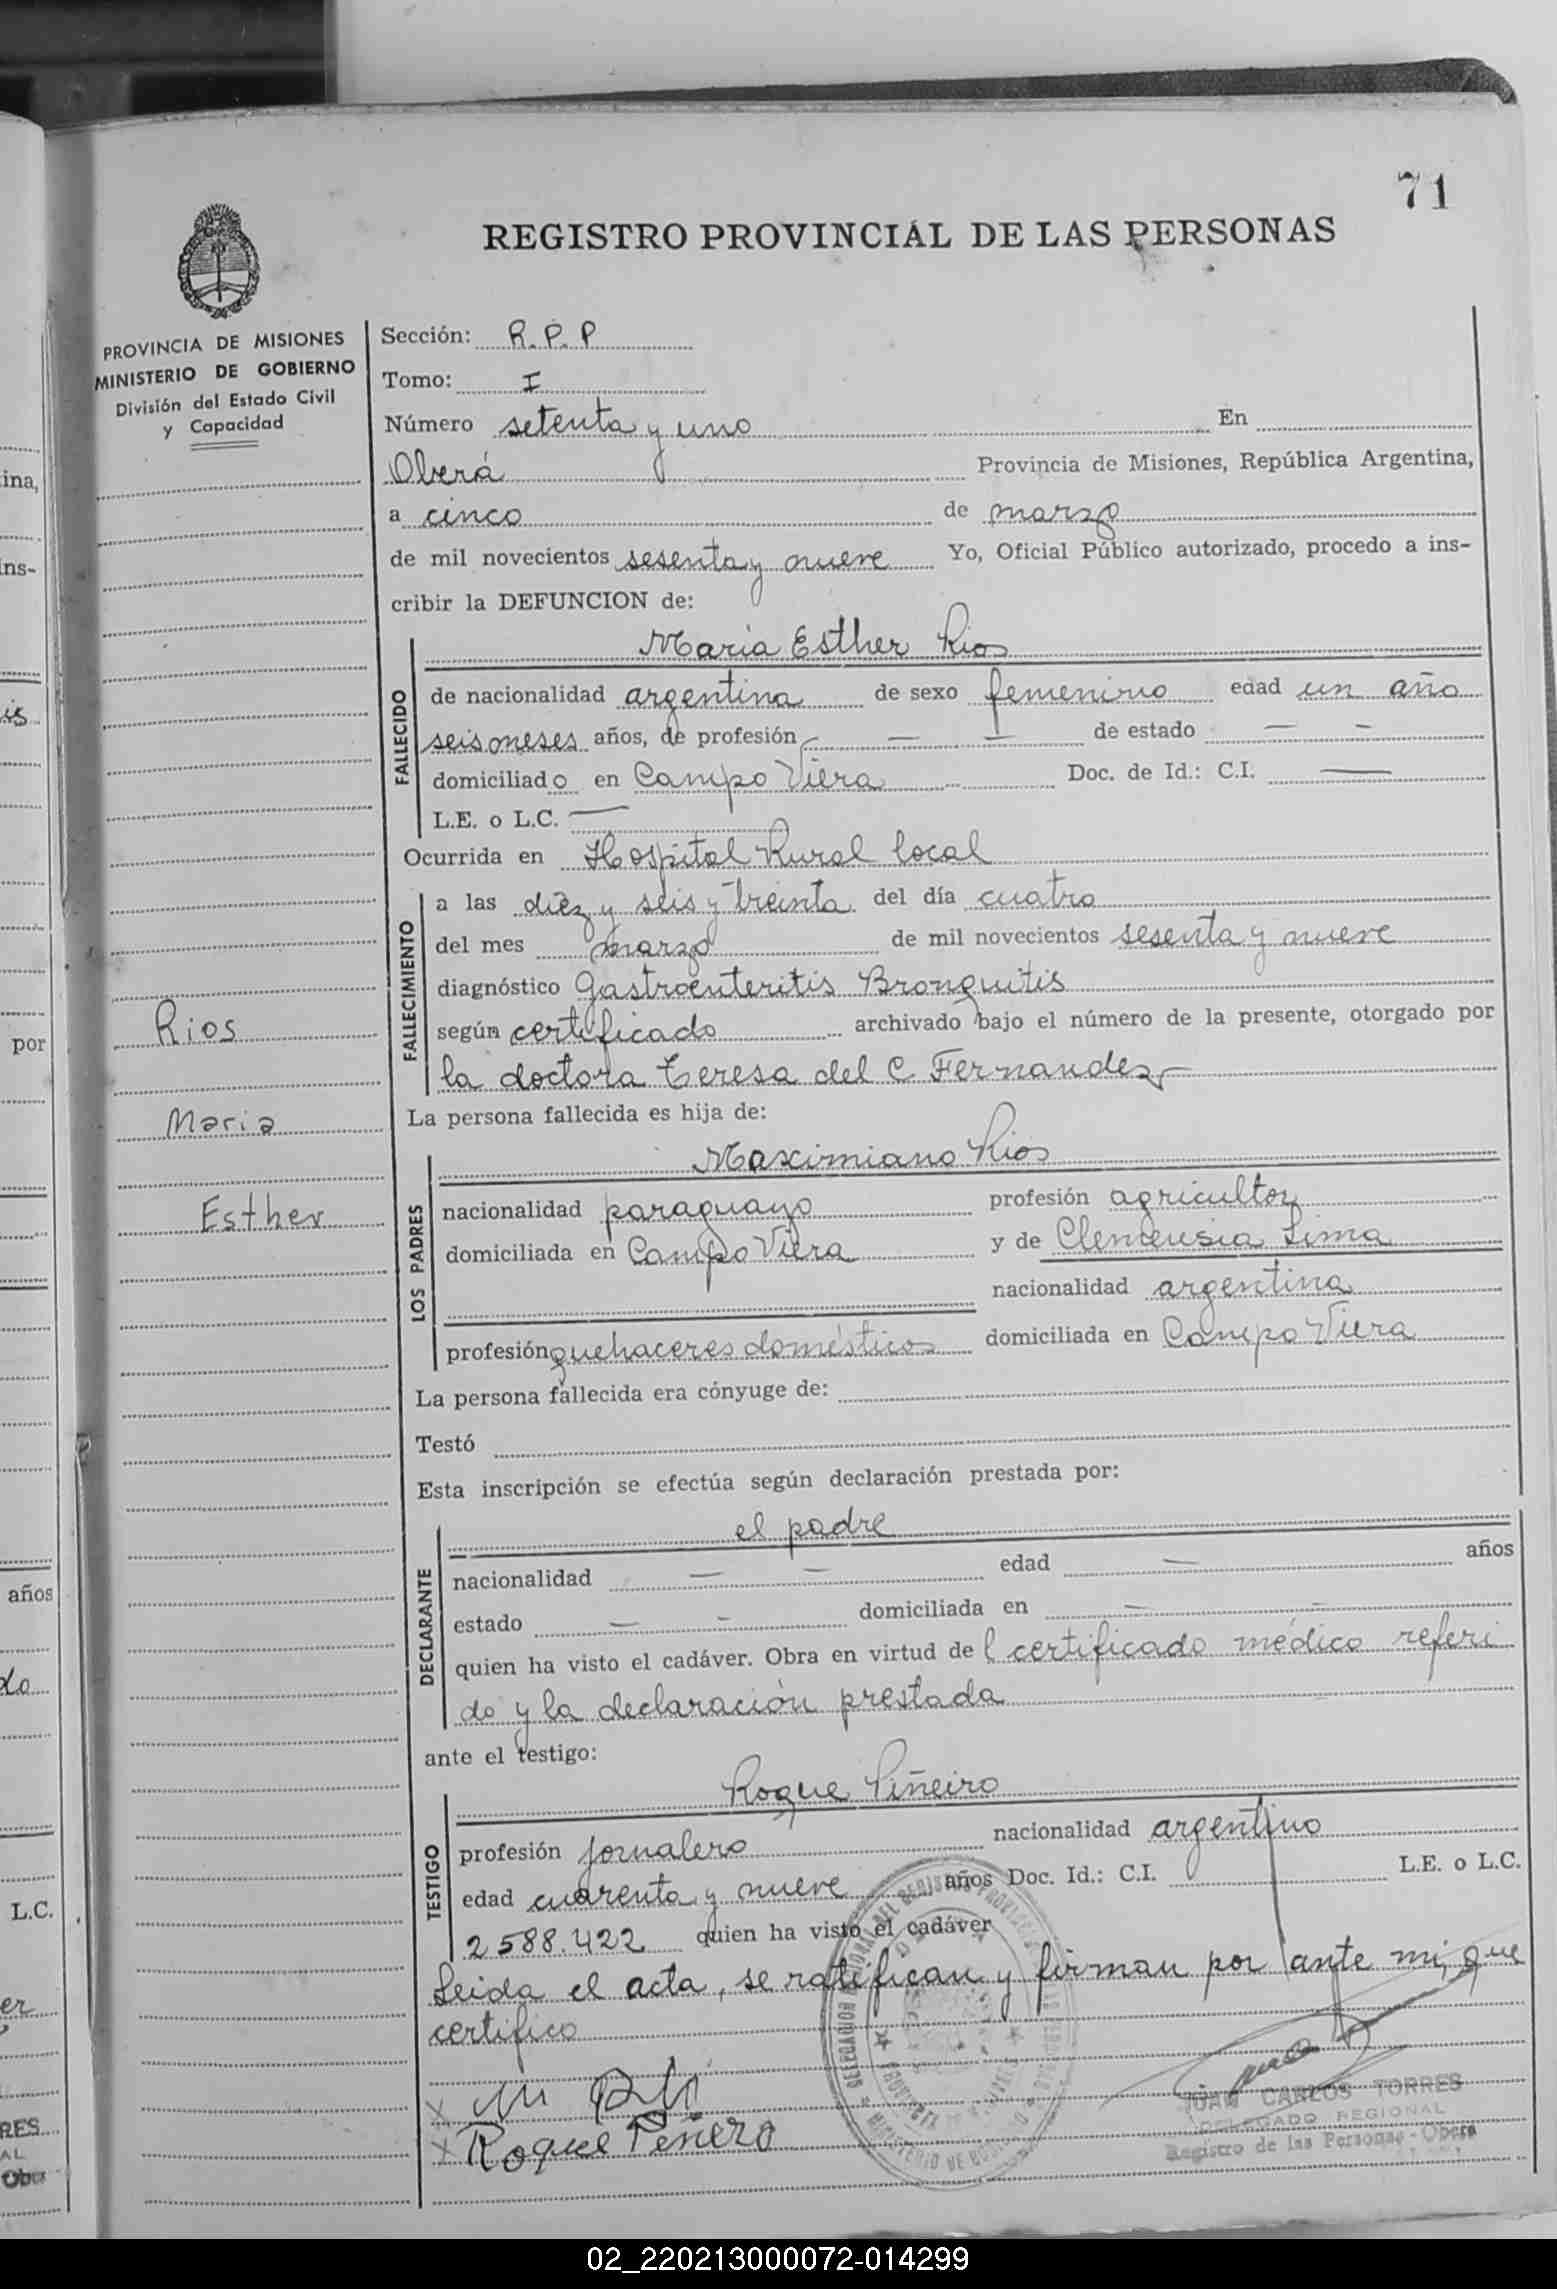 71
REGISTRO PROVINCIAL DE LAS PERSONAS
PROVINCIA DE MISIONES
MINISTERIO DE GOBIERNO
División del Estado Civil
y Capacidad
Rios
Maria
Esther
Sección: R. P. P
Tomo: I
Número setenta y uno En
Oberá Provincia de Misiones, República Argentina,
a cinco de marzo
de mil novecientos sesenta y nueve Yo, Oficial Público autorizado, procedo a ins-
cribir la DEFUNCION de:
Maria Esther Rios
FALLECIDO
de nacionalidad argentina de sexo femenino edad un año
seis meses años, de profesión — — de estado — —
domiciliado en Campo Viera Doc. de Id.: C.I. —
L.E. o L.C. —
Ocurrida en Hospital Rural local
FALLECIMIENTO
a las diez y seis y treinta del día cuatro
del mes marzo de mil novecientos sesenta y nueve
diagnóstico Gastroenteritis Bronquitis
según certificado archivado bajo el número de la presente, otorgado por
la doctora Teresa del C Fernandez
La persona fallecida es hija de:
Maximiano Rios
LOS PADRES
nacionalidad paraguayo profesión agricultor
domiciliada en Campo Viera y de Clemensia Lima
nacionalidad argentina
profesión quehaceres domésticos domiciliada en Campo Viera
La persona fallecida era cónyuge de:
Testó
Esta inscripción se efectúa según declaración prestada por:
el padre
DECLARANTE
nacionalidad — — edad — años
estado — — domiciliada en — —
quien ha visto el cadáver. Obra en virtud de l certificado médico referi
do y la declaración prestada
ante el testigo:
Roque Piñeiro
TESTIGO
profesión jornalero nacionalidad argentino
edad cuarenta y nueve años Doc. Id.: C.I. L.E. o L.C.
2588.422 quien ha visto el cadáver
Leida el acta, se ratifican y firman por ante mi, que
certifico
Roque Peñero
JUAN CARLOS TORRES
DELEGADO REGIONAL
Registro de las Personas - Obera
02_220213000072-014299